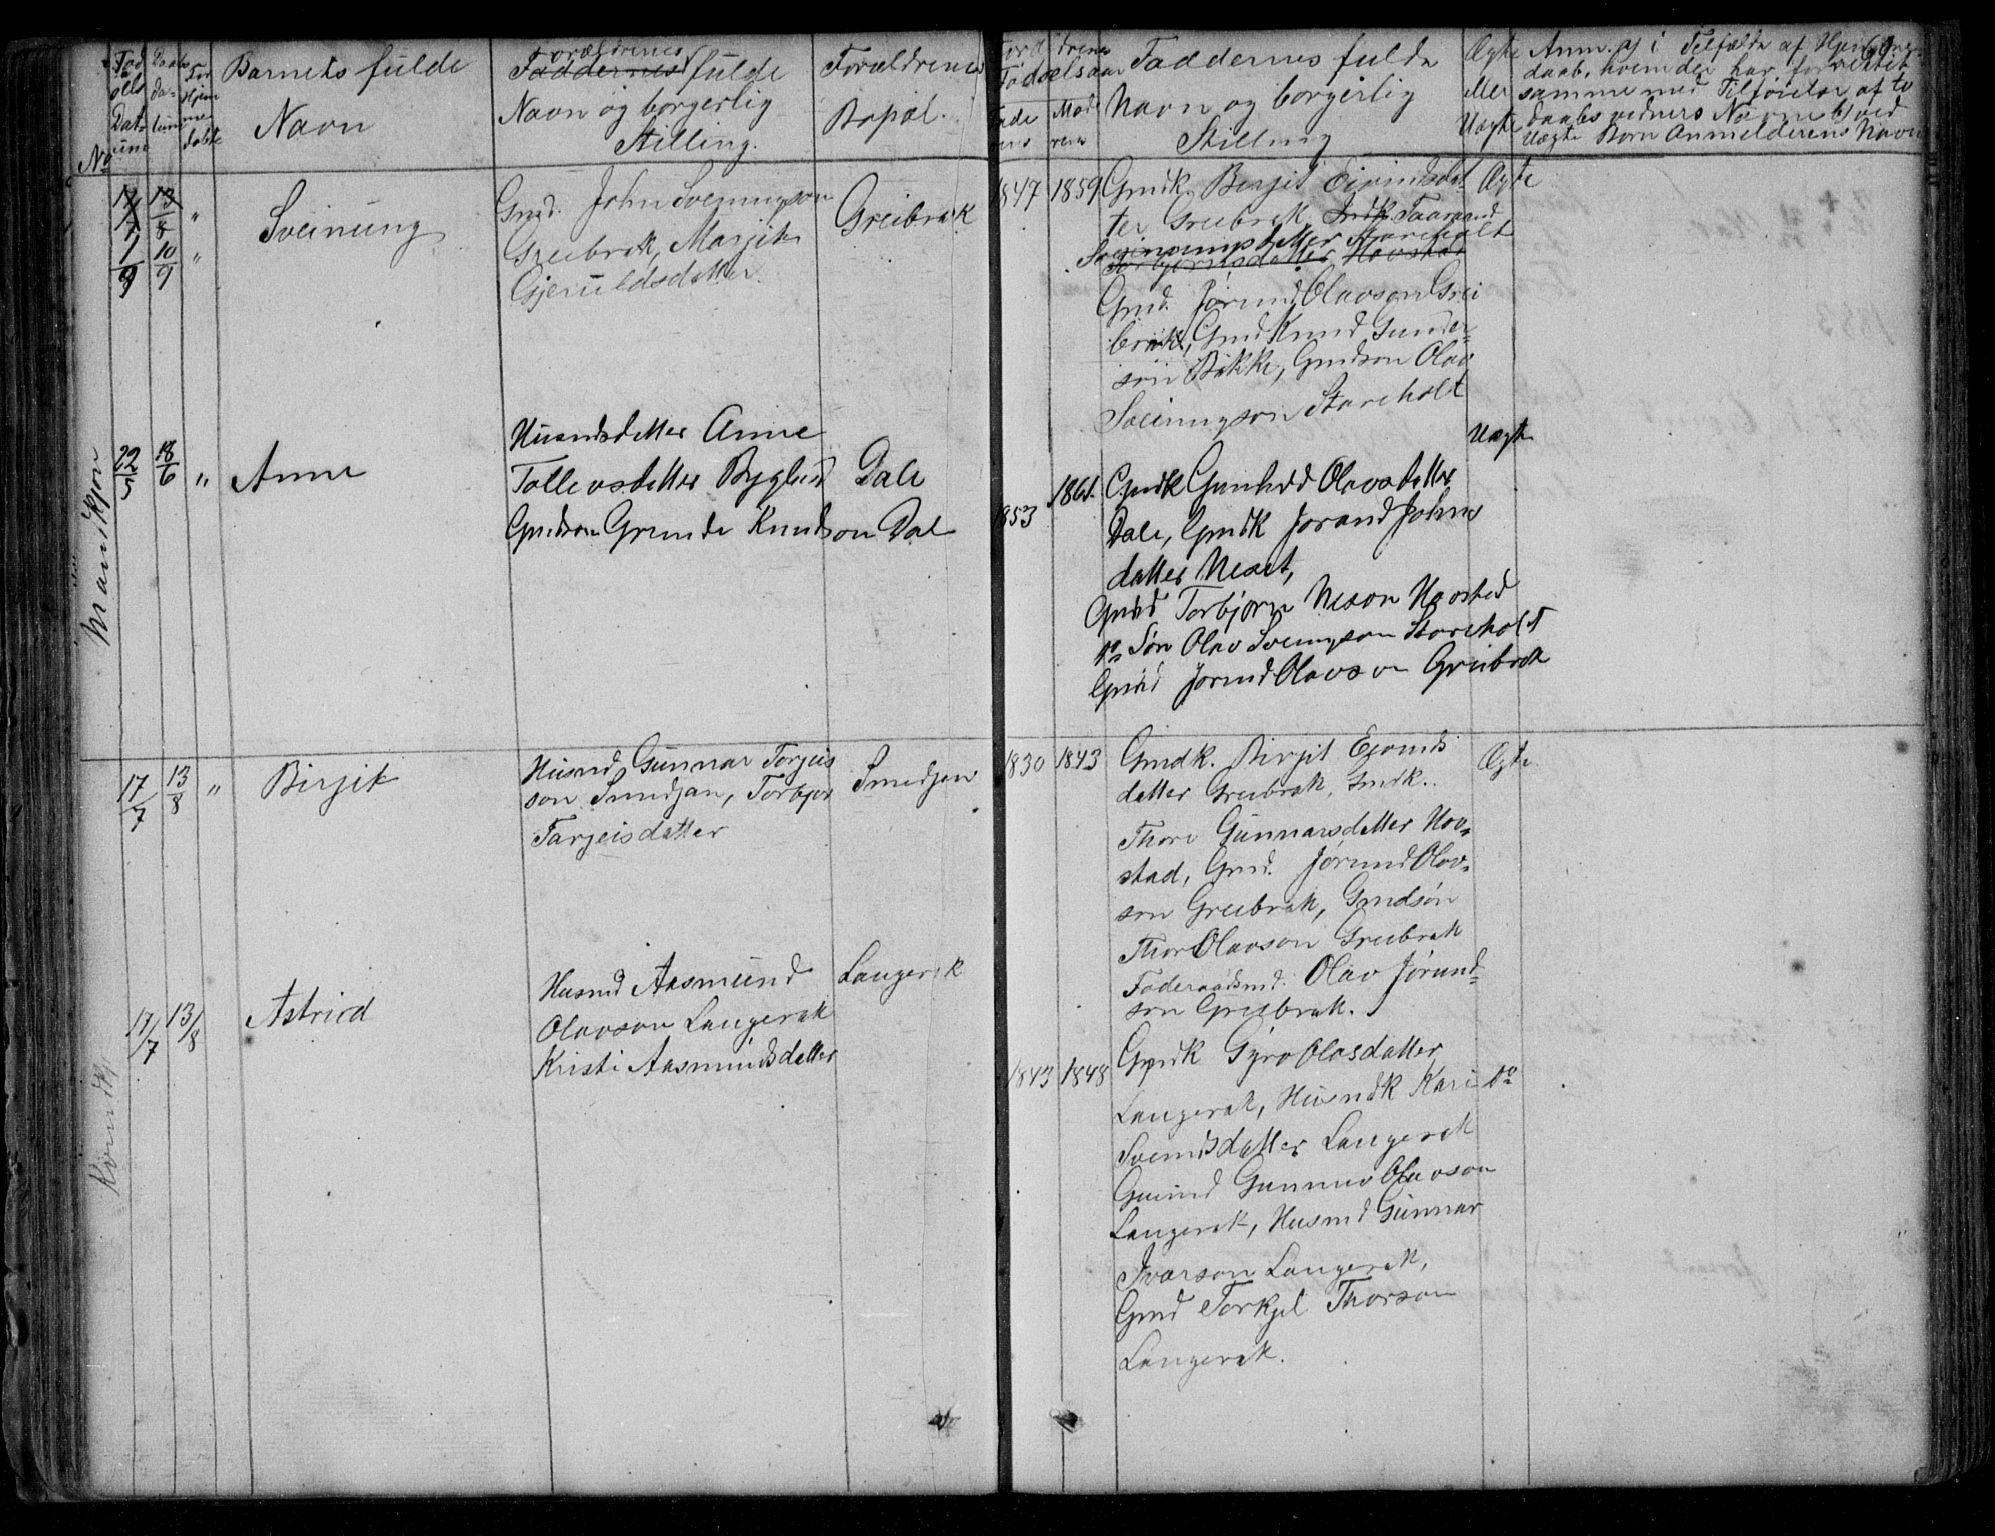 Barnets fulde
Navn
Forældrenes
Faddernes fulde
Navn og borgerlig
Stilling.
Forældrenes
Bopæl.
Faddernes fulde
Navn og borgerlig
Stilling
Ægte
eller
Uægte
Anm. a) i Tilfælde af Hjemme-
daab, hvem der har forrettet
samme med Tilføielse af to
daabsvidners Navne b) ved
Uægte Børn Anmelderens Navn
No
Mandkjøn
17/7 13/8 "
1/9 10/9 "
Sveinung
Gmd. John Sveinungson
Greibrok, Margit
Gjeruldsdatter.
Greibrok
1847 1859
Gmdk. Birgit Eivindsdat
ter Greibrok, Indk Taarand
Sveinungsdatter Storeholt
Torbjørnsdatter Hovstad
Gmd. Jørund Olavson Grei
brok, Gmd Knud Gunder-
son Bakke, Gmdson Olav
Sveinungson Storeholt
Ægte
22/5 18/6 "
Anne
Husmdsdatter Anne
Tollevsdatter Bygland
Gmdson Grunde Knudson Dale
Dale
1853 1861
Gmdk Gunhild Olavsdatter
Dale, Gmdk Jorand Johns
datter Neset,
Gmd Torbjørn Neson Hovsted
do Søn Olav Sveinungson Storeholt
Gmd Jørund Olavson Greibrok
Uægte
Kvindk
17/7 13/8 "
Birgit
Husmd Gunnar Torgeis
son Smedjan, Torbjør
Targeisdatter
Smedjan
1830 1843
Gmdk. Birgit Eivinds
datter Greibrok, Gmdk.
Thore Gunnarsdatter Hov-
stad, Gmd. Jørund Olav-
son Greibrok, Gmdsøn
Thor Olavson Greibrok
Føderaadsmd. Olav Jørund-
son Greibrok.
Ægte
17/7 13/8
Astrid
Husmd Aasmund
Olavson Langerak
Kristi Aasmundsdatter
Langerak
1843 1848
Gmdk Gyro Olasdatter
Langerak, Husmdk Kari
Svendsdatter Langerak
Gmd Gunnar Olavson
Langerak, Husmd Gunnar
Ivarson Langerak,
Gmd Torkjel Thorson
Langerak.
do